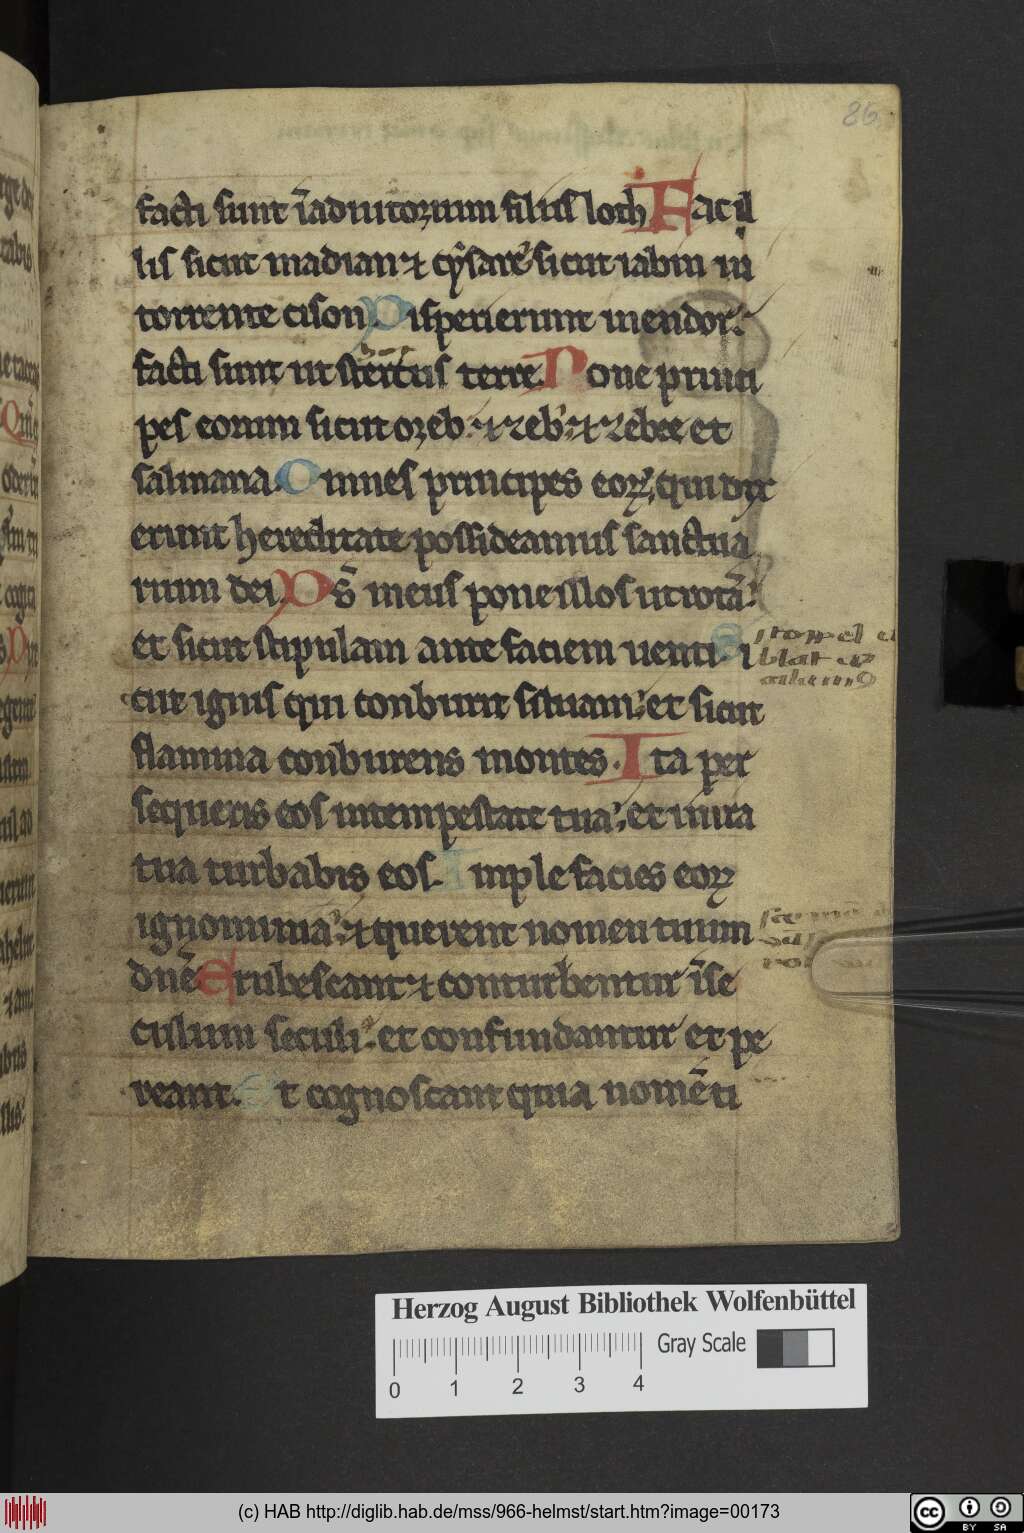 86
facti sunt ī adiutorium filiis loth Fac il
lis sicut madian ⁊ cysare sicut iabin in
torrente cison Disperierunt in endor
facti sunt ut stercus terre Pone princi
pes eorum sicut oreb ⁊ zeb ⁊ zebee et
salmana Omnes principes eoꝝ qui dix
erunt hereditate possideamus sanctua
rium dei Ds̄ meus pone illos ut rotā
et sicut stipulam ante faciem uenti Si
stoppel
blat
cut ignis qui conburit siluam et sicut
flamma conburens montes Ita per
sequeris eos in tempestate tua et in ira
tua turbabis eos Imple facies eoꝝ
ignominia ⁊ querent nomen tuum
dn̄e Erubescant ⁊ conturbentur ī se
culum seculi et confundantur et pe
reant Et cognoscant quia nomē ti
Herzog August Bibliothek Wolfenbüttel
Gray Scale
0 1 2 3 4
(c) HAB http://diglib.hab.de/mss/966-helmst/start.htm?image=00173
cc BY SA